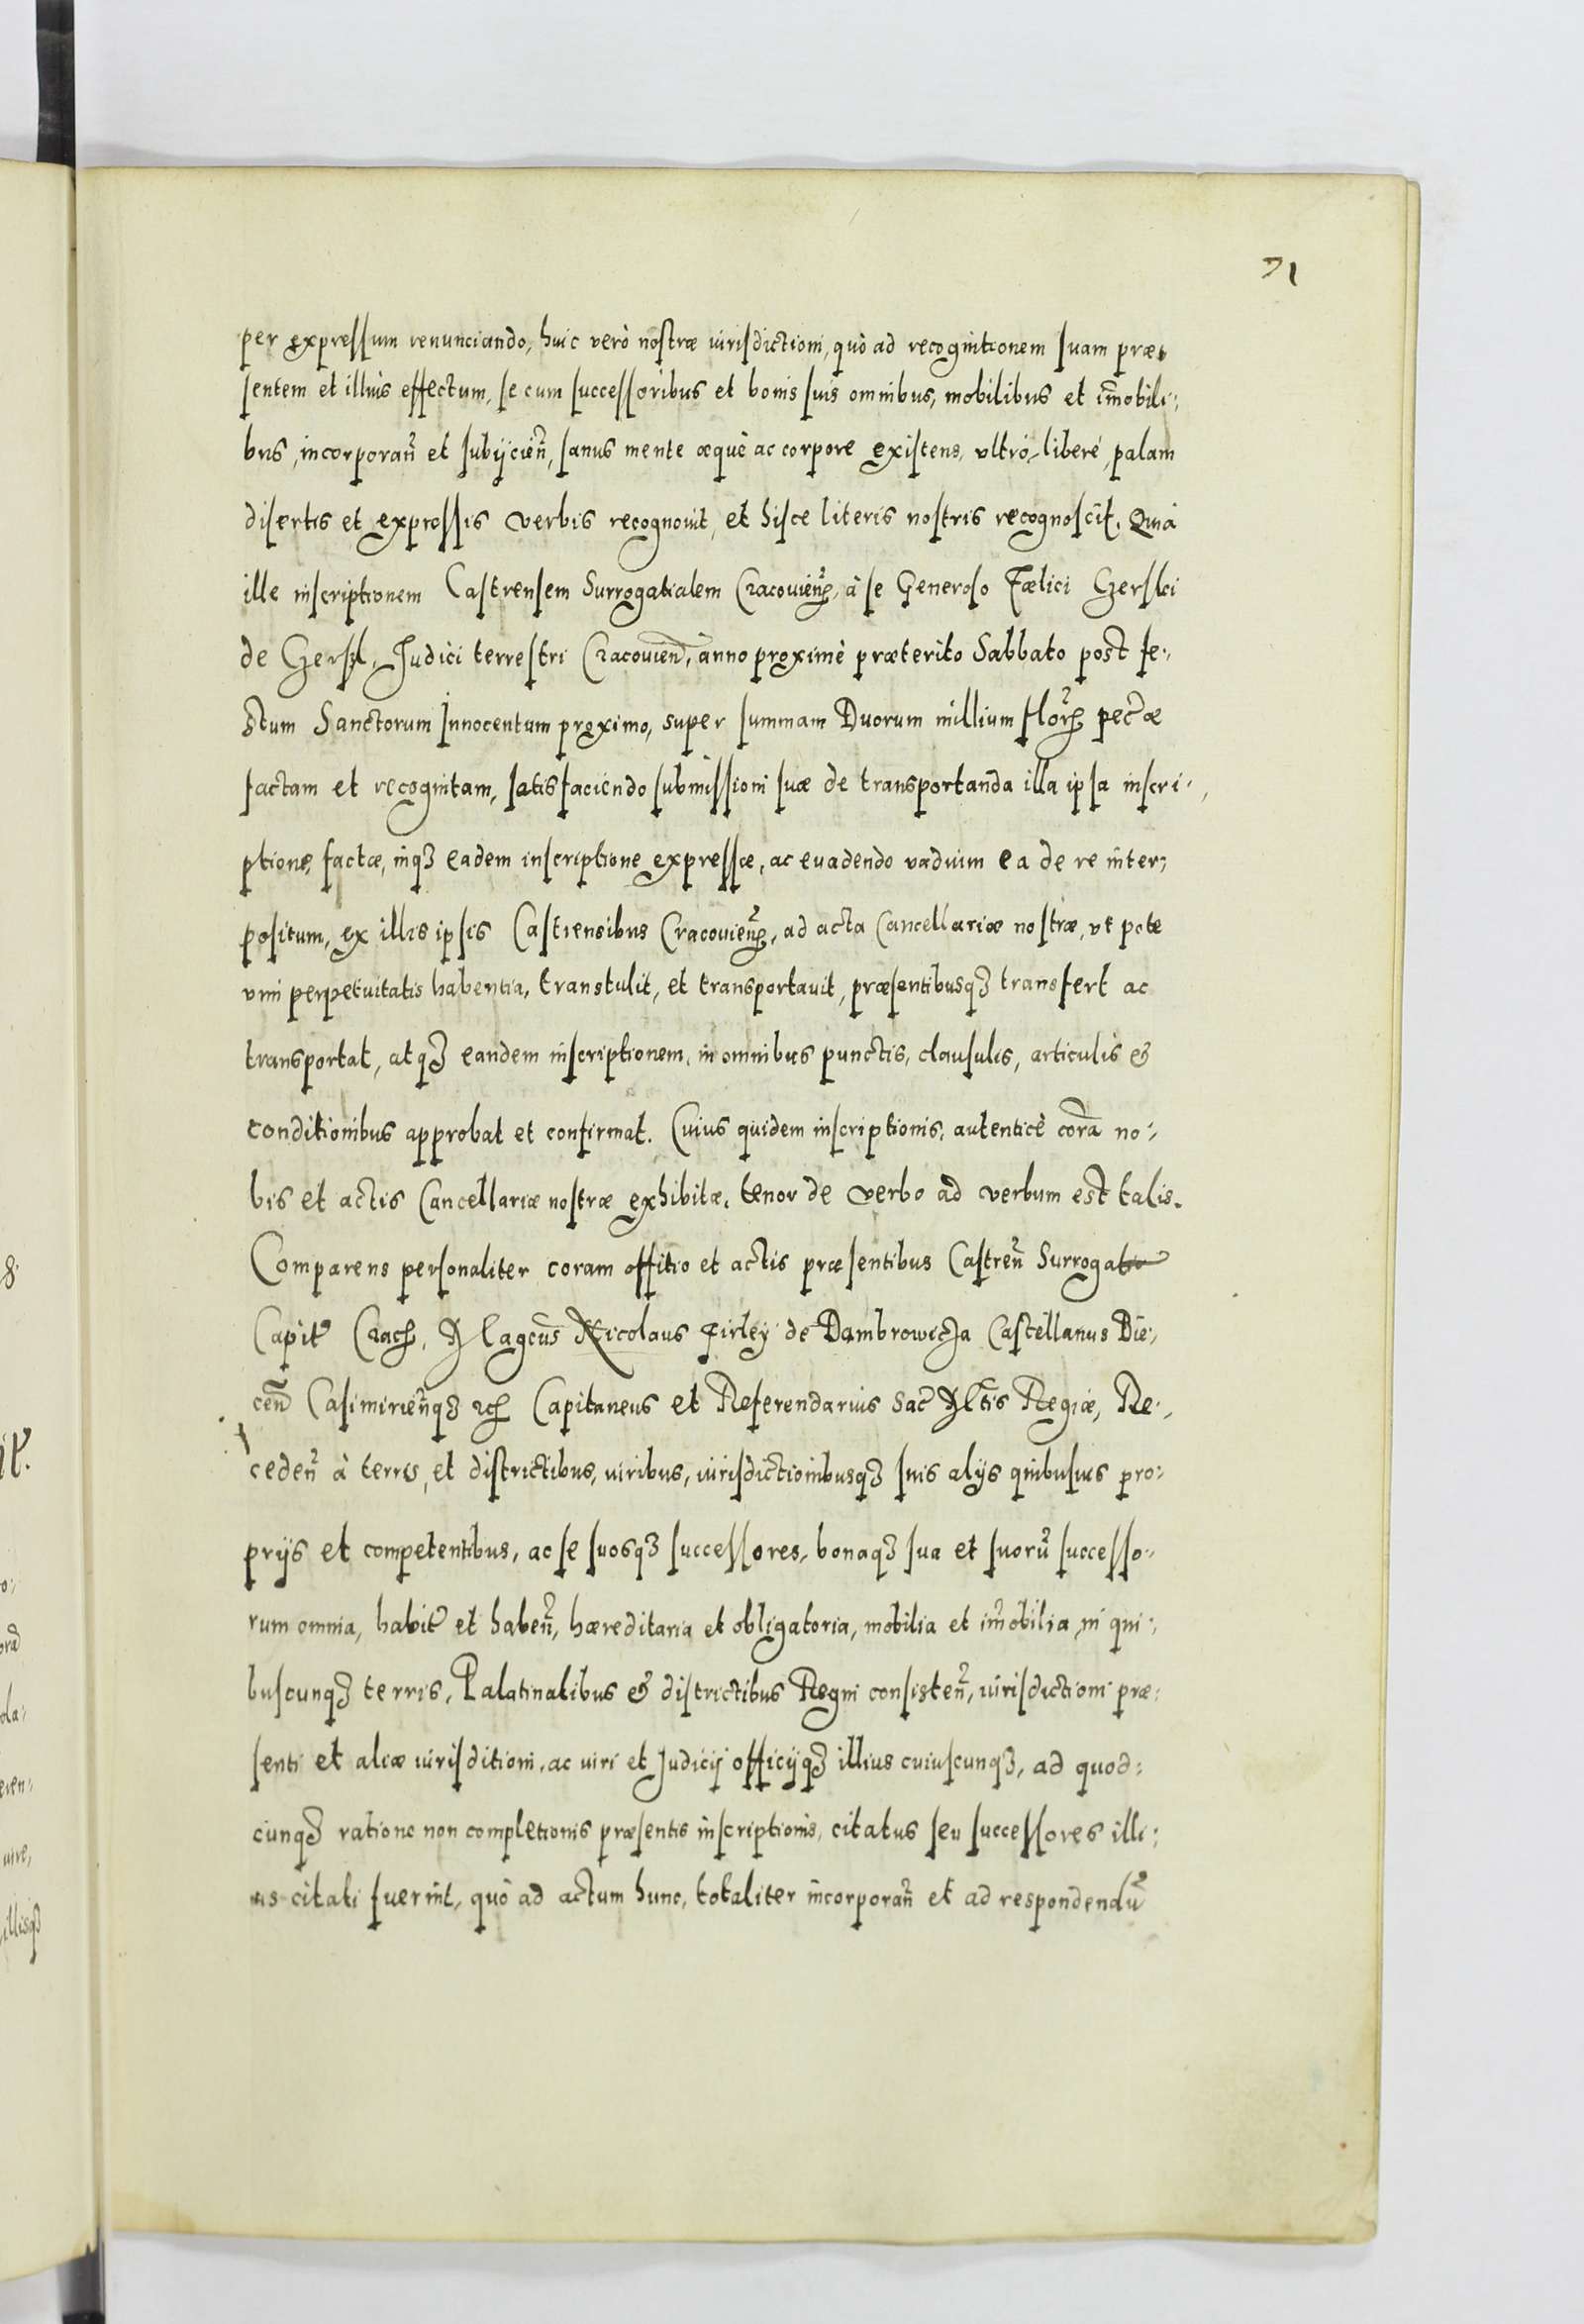 71
per expressum renunciando, huic verò nostræ iurisdictioni, quò ad recognitionem suam præ,
sentem et illius effectum, se cum successoribus et bonis suis omnibus, mobilibus et im̄obili:
bus, incorporan̄ et subijcien̄, sanus mente æquè ac corpore existens, ultrò, liberè, palam
disertis et expressis verbis recognouit, et hisce literis nostris recognoscit. Quia
ille inscriptionem Castrensem Surrogatialem Cracouien̄, à se Generoso Fælici Czerski
de Czersk, Judici terrestri Cracouien̄, anno proximè præterito Sabbato post fe:,
stum Sanctorum Innocentum proximo, super summam Duorum millium Flor̄ pec̄æ
factam et recognitam, satisfaciendo submissioni suæ de transportanda illa ipsa inscri:,
ptione, factæ, inq3 eadem inscriptione expressæ, ac euadendo vadium ea de re inter:
positum, ex illis ipsis Castrensibus Cracouien̄, ad acta Cancellariæ nostræ, ut pote
vim perpetuitatis habentia, transtulit, et transportauit, præsentibusq3 transfert ac
transportat, atq3 eandem inscriptionem, in omnibus punctis, clausulis, articulis &
conditionibus approbat et confirmat. Cuius quidem inscriptionis, autenticè corā no:,
bis et actis Cancellariæ nostræ exhibitæ, tenor de verbo ad verbum est talis.
Comparens personaliter coram offitio et actis præsentibus Castren̄ Surrogat
Capit Crac, Magcus̄ Nicolaus Firley de Dambrowicza Castellanus Bie:,
cen̄ Casimirien̄q3 Capitaneus et Referendarius Sac̄ Mt̄is Regiæ, Re:,
ceden̄ à terris, et districtibus, iuribus, iurisdictionibusq3 suis alijs quibusuis pro:
prijs et competentibus, ac se suosq3 successores, bonaq3 sua et suorū successo:,
rum omnia, habit et haben̄, hæreditaria et obligatoria, mobilia et im̄obilia, in qui:,
buscunq3 terris, Palatinatibus & districtibus Regni consisten̄, iurisdictioni præ:
senti et aliæ iurisditioni, ac iuri et Judicij officijq3 illius cuiuscunq3, ad quod:
cunq3 ratione non completionis præsentis inscriptionis, citatus seu successores illi:
us citati fuerint, quò ad actum hunc, totaliter incorporan̄ et ad respondendū